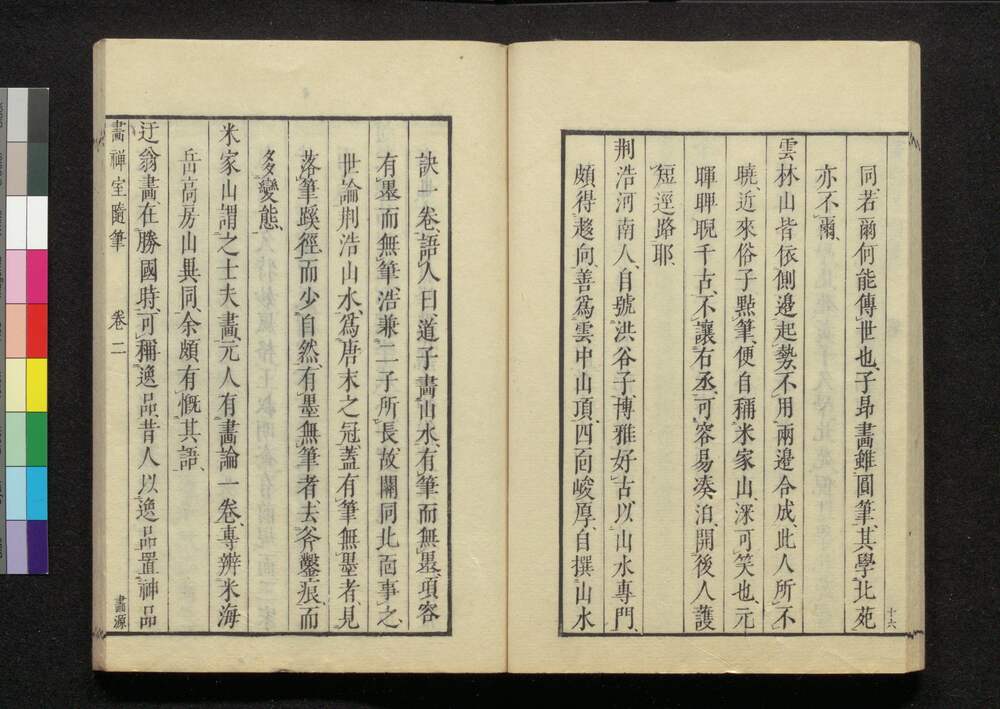 同若爾何能傳世也、子昂畫雖圓筆、其學北苑
亦不爾、
雲林山皆依側邊起勢、不用兩邊合成、此人所不
曉、近來俗子點筆、便自稱米家山、深可笑也、元
暉睥睨千古、不讓右丞、可容易湊泊、開後人護
短逕路耶、
荆浩河南人、自號洪谷子、博雅好古、以山水專門、
頗得趍向、善爲雲中山頂、四面峻厚、自撰山水
十六
訣一卷、語人曰、道子畫山水、有筆而無墨、項容
有墨而無筆、浩兼二子所長、故關同北面事之、
世論荆浩山水、爲唐末之冠、蓋有筆無墨者、見
落筆蹊徑、而少自然、有墨無筆者、去斧鑿痕、而
多變態、
米家山謂之士夫畫、元人有畫論一卷、專辨米海
岳高房山異同、余頗有慨其語、
迂翁畫在勝國時、可稱逸品、昔人以逸品置神品
畫禪室隨筆 卷二 畫源